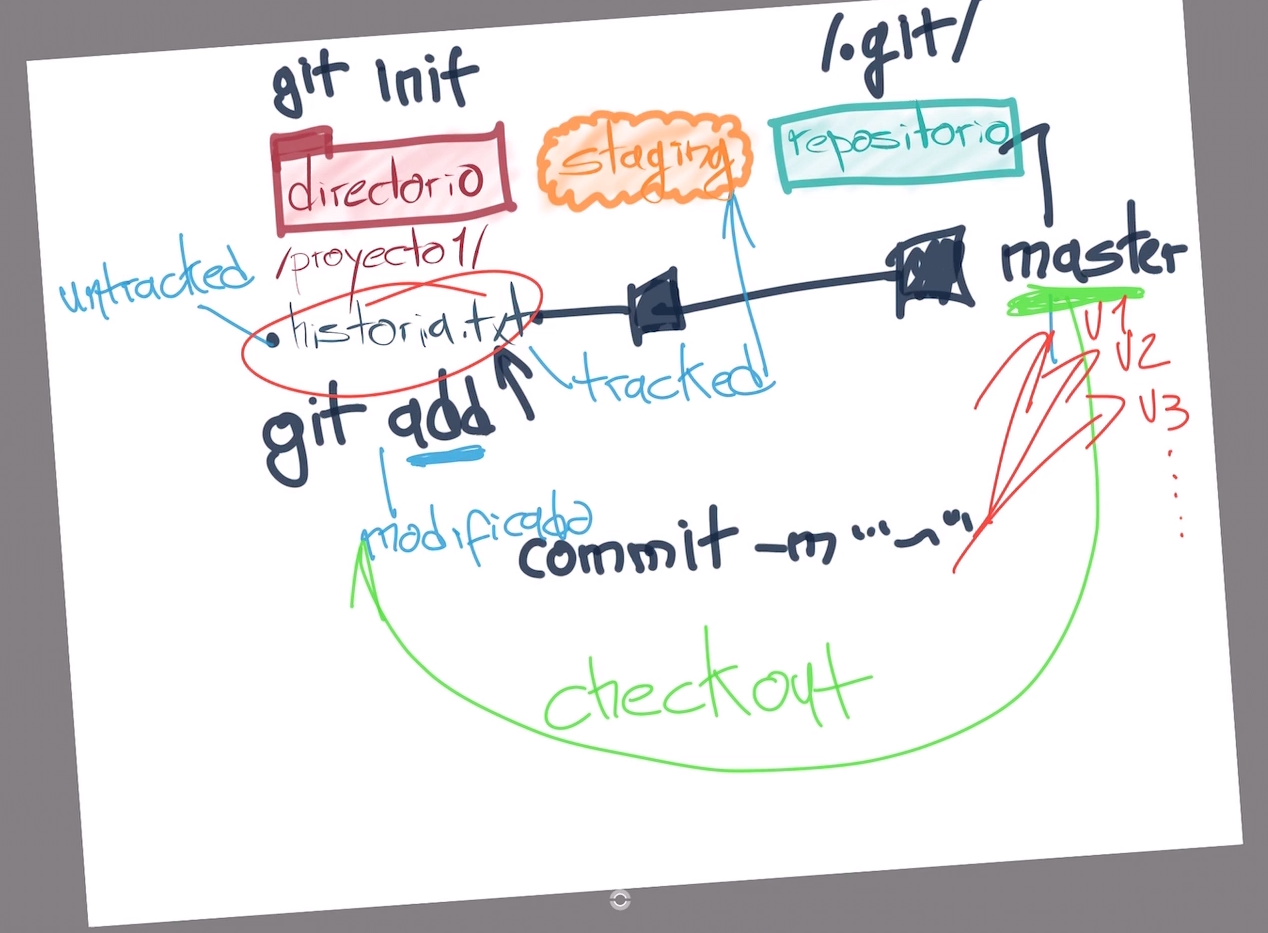 git init
/.git/
directorio
staging
repositorio
/proyecto1/
untracked
master
historia.txt
V1
V2
tracked
V3
git add
modificado
commit -m "~"
checkout